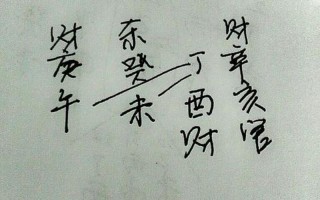 财庚午
杀癸未
丁酉财
财辛亥官